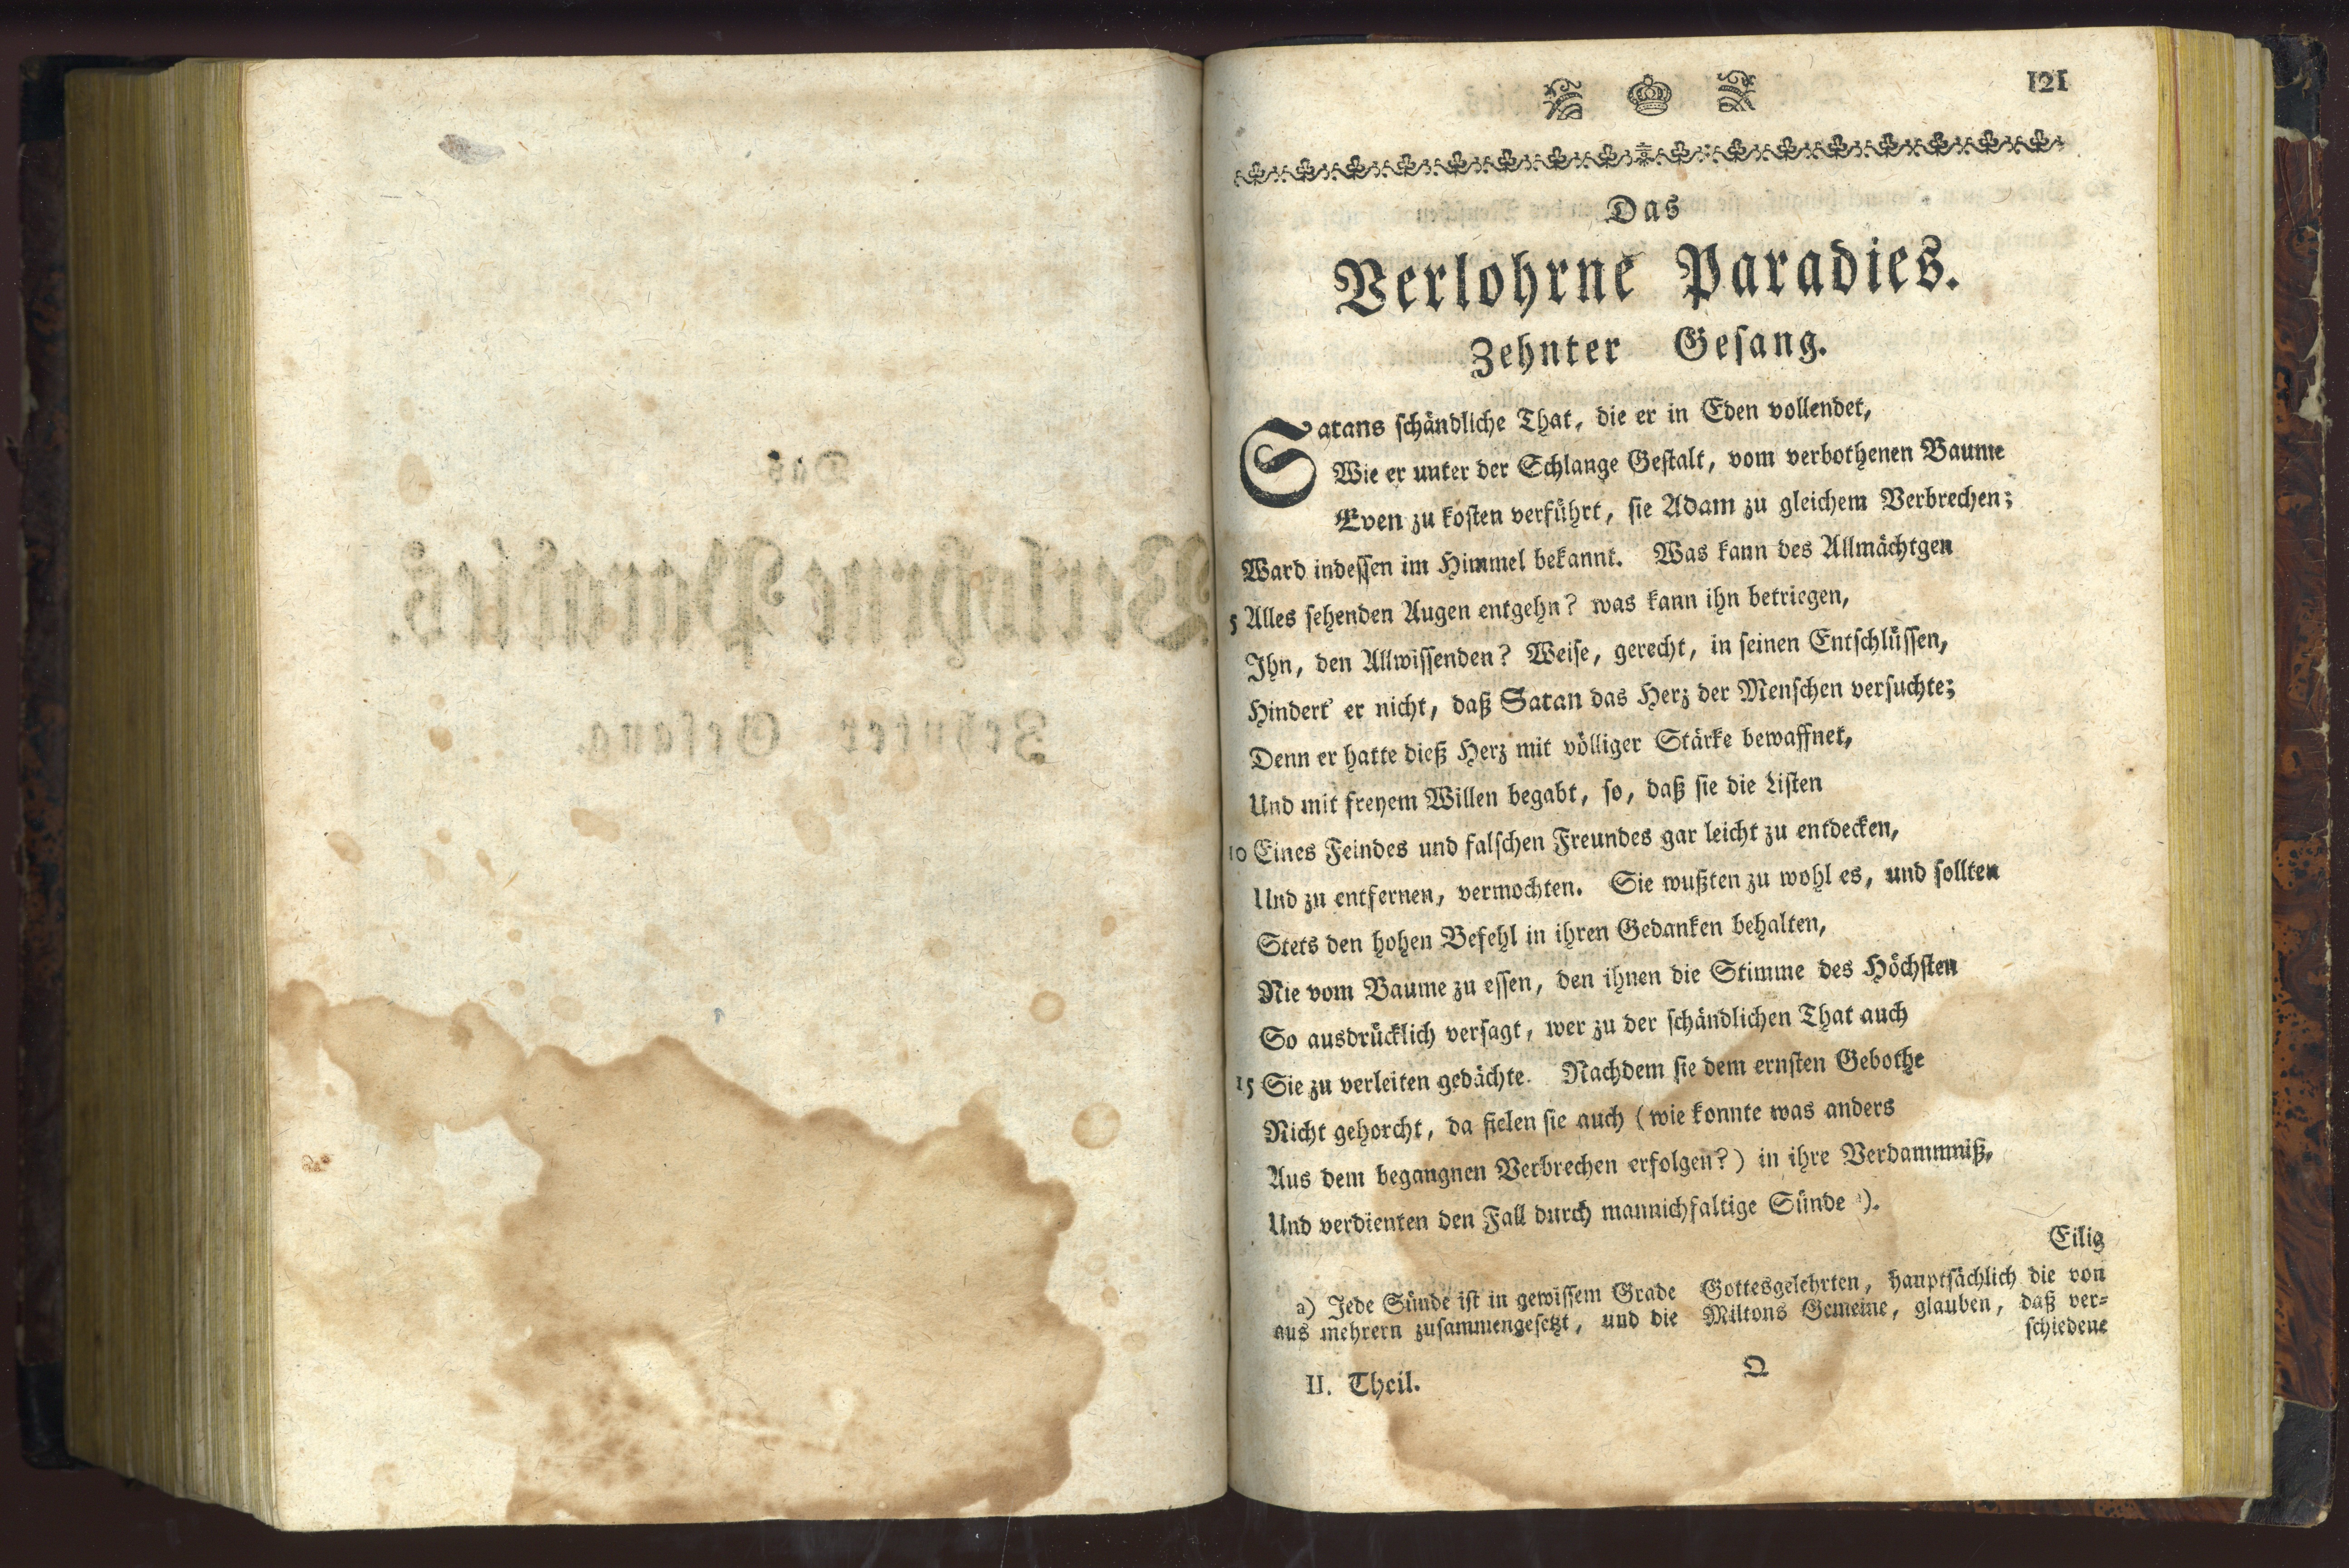 121
Das
Verlohrne Paradies.
Zehnter Gesang.
Satans schändliche That, die er in Eden vollendet,
Wie er unter der Schlange Gestalt, vom verbothenen Baume
Even zu kosten verführt, sie Adam zu gleichem Verbrechen;
Ward indessen im Himmel bekannt. Was kann des Allmächtgen
5 Alles sehenden Augen entgehn? was kann ihn betriegen,
Ihn, den Allwissenden? Weise, gerecht, in seinen Entschlüssen,
Hindert' er nicht, daß Satan das Herz der Menschen versuchte;
Denn er hatte dieß Herz mit völliger Stärke bewaffnet,
Und mit freyem Willen begabt, so, daß sie die Listen
10 Eines Feindes und falschen Freundes gar leicht zu entdecken,
Und zu entfernen, vermochten. Sie wußten zu wohl es, und sollten
Stets den hohen Befehl in ihren Gedanken behalten,
Nie vom Baume zu essen, den ihnen die Stimme des Höchsten
So ausdrücklich versagt, wer zu der schändlichen That auch
15 Sie zu verleiten gedächte. Nachdem sie dem ernsten Gebothe
Nicht gehorcht, da fielen sie auch (wie konnte was anders
Aus dem begangnen Verbrechen erfolgen?) in ihre Verdammniß,
Und verdienten den Fall durch mannichfaltige Sünde a).
Eilig
a) Jede Sünde ist in gewissem Grade
aus mehrern zusammengesetzt, und die
Gottesgelehrten, hauptsächlich die von
Miltons Gemeine, glauben, daß ver-
schiedene
II. Theil.
Q